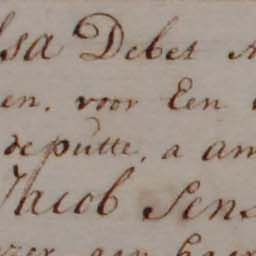 lsa Debet
en. voor Een
de putte. a am
Jacob Sens